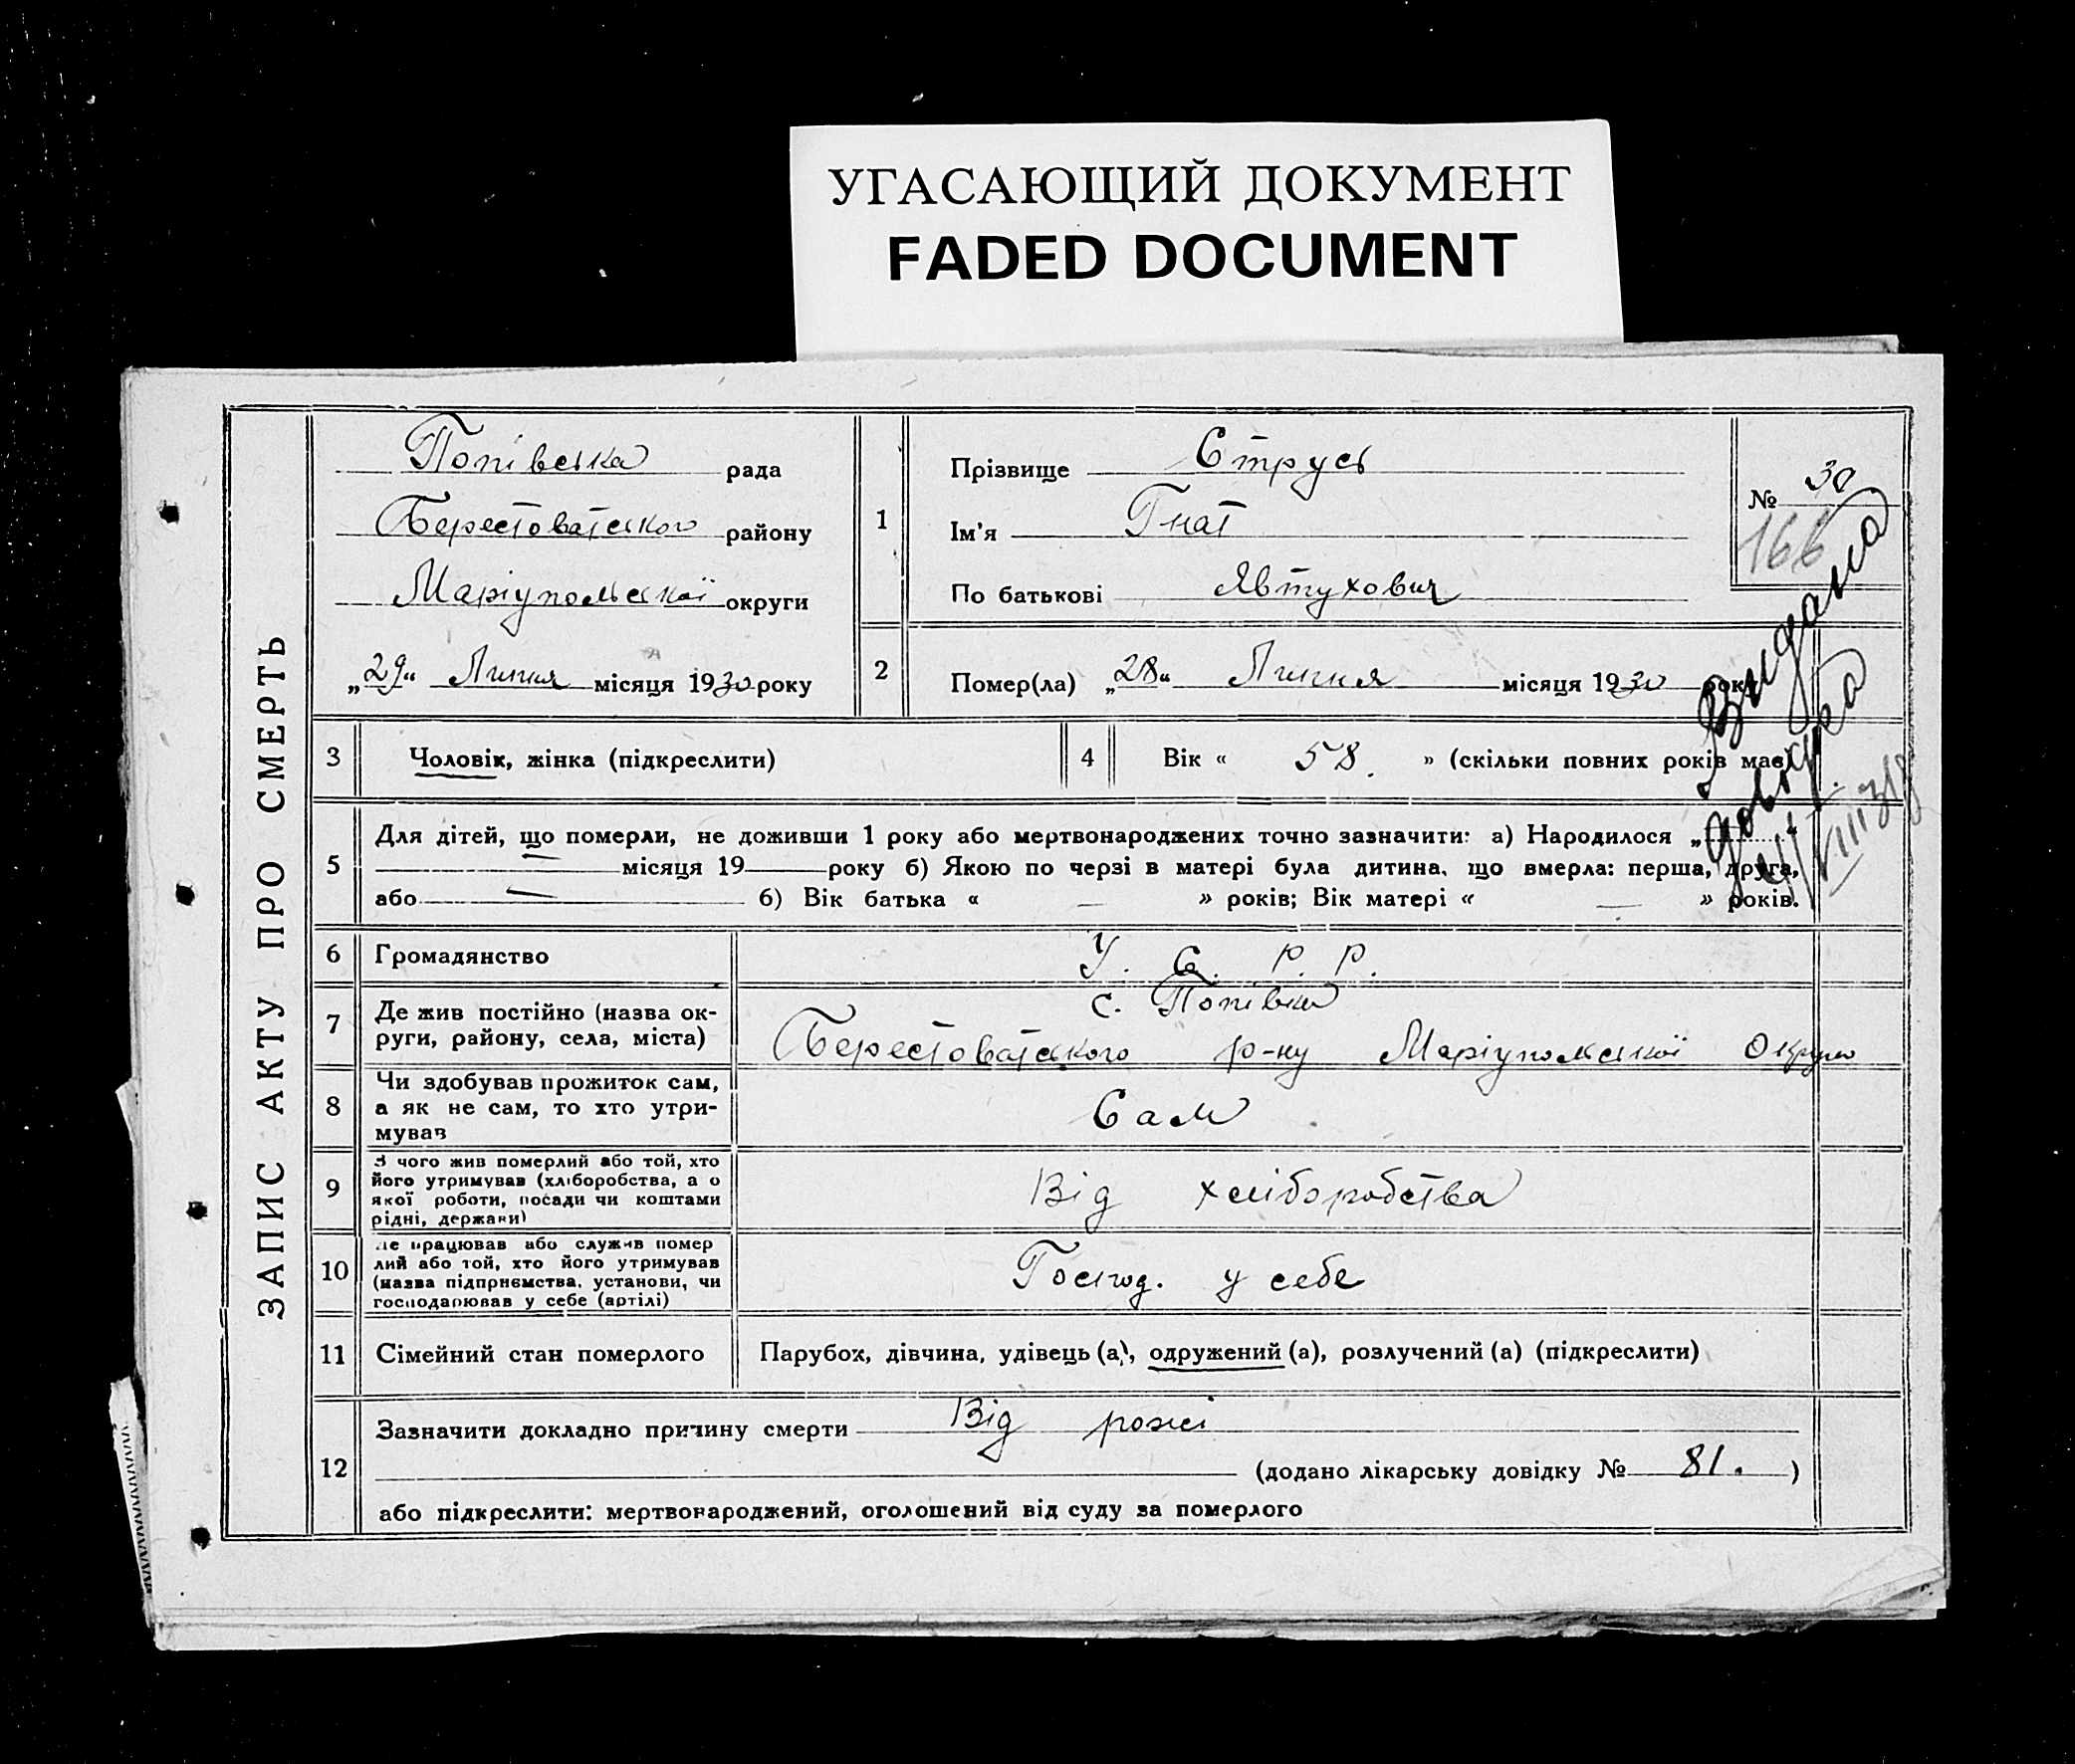 УГАСАЮЩИЙ ДОКУМЕНТ
FADED DOCUMENT
ЗАПИС АКТУ ПРО СМЕРТЬ
Попівська рада
Берестоватського району
Маріупольської округи
„29“ Липня місяця 1930 року
1
Прізвище Струсь
Ім'я Гнат
По батькові Явтухович
№ 30
166
2
Помер(ла) „28“ Липня місяця 1930 року
Видана
довідка
3 Чоловік, жінка (підкреслити)
4 Вік « 58. » (скільки повних років має)
5
Для дітей, що померли, не доживши 1 року або мертвонароджених точно зазначити: а) Народилося „
— місяця 19 року б) Якою по черзі в матері була дитина, що вмерла: перша, друга,
або — б) Вік батька « — » років; Вік матері « — » років.
6 Громадянство У. С. Р. Р.
7
Де жив постійно (назва ок-
руги, району, села, міста)
с. Попівка
Берестоватського р-ну Маріупольської Округи
8
Чи здобував прожиток сам,
а як не сам, то хто утри-
мував
Сам
9
З чого жив померлий або той, хто
його утримував (хліборобства, а о
якої роботи, посади чи коштами
рідні, держави)
Від хліборобства
10
Де працював або служив помер
лий або той, хто його утримував
(назва підприємства, установи, чи
господарював у себе (артілі)
Господ. у себе
11 Сімейний стан померлого
Парубох, дівчина, удівець (а), одружений (а), розлучений (а) (підкреслити)
12
Зазначити докладно причину смерти Від рожі
(додано лікарську довідку № 81. )
або підкреслити: мертвонароджений, оголошений від суду за померлого